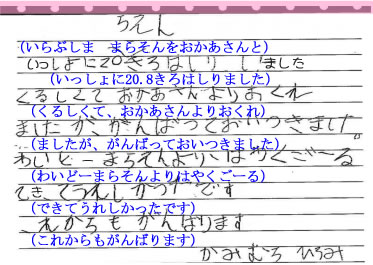 ちえん
(いらぶしま　まらそんをおかあさんと)
いっしょに20きろはしりしました
(いっしょに20.8きろはしりました)
くるしくておかあさんよりおくれ
(くるしくて、おかあさんよりおくれ)
ましたが、がんばっておいつきまし
(ましたが、がんばっておいつきました)
わいどーまらそんよりはやくごーる
(わいどーまらそんよりはやくごーる)
できてうれしかったです
(できてうれしかったです)
れからもがんばります
(これからもがんばります)
かみむら ひろみ